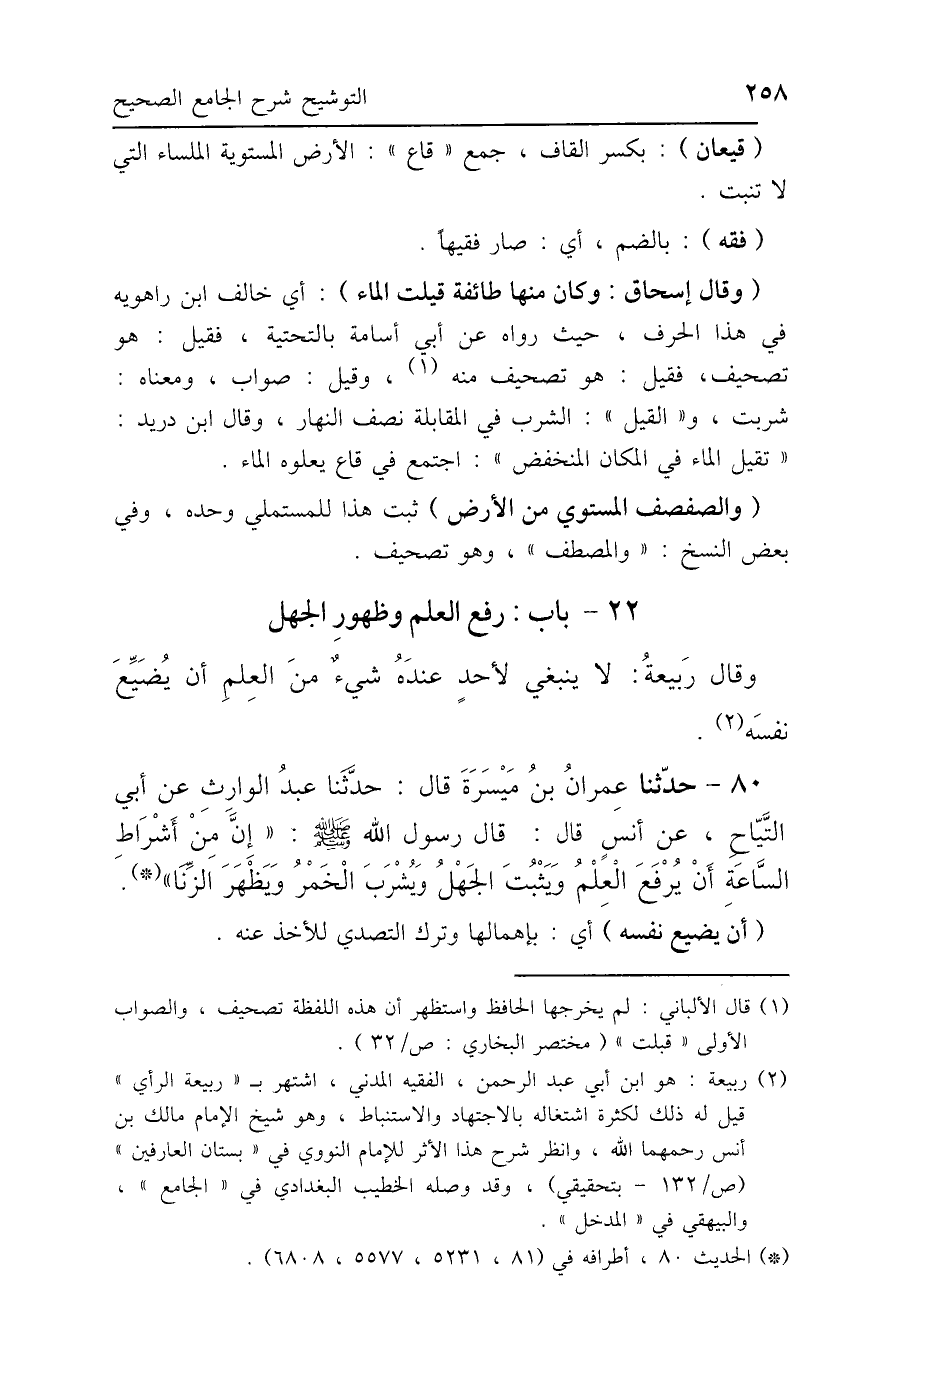 ٢٥٨ التوشيح شرح الجامع الصحيح
( قيعان ) : بكسر القاف ، جمع « قاع » : الأرض المستوية الملساء التي
لا تنبت .
( فقه ) : بالضم ، أي : صار فقيهاً .
( وقال إسحاق : وكان منها طائفة قيلت الماء ) : أي خالف ابن راهويه
في هذا الحرف ، حيث رواه عن أبي أسامة بالتحتية ، فقيل : هو
تصحيف، فقيل : هو تصحيف منه (١) ، وقيل : صواب ، ومعناه :
شربت ، و« القيل » : الشرب في المقابلة نصف النهار ، وقال ابن دريد :
« تقيل الماء في المكان المنخفض » : اجتمع في قاع يعلوه الماء .
( والصفصف المستوي من الأرض ) ثبت هذا للمستملي وحده ، وفي
بعض النسخ : « والمصطف » ، وهو تصحيف .
٢٢ - باب : رفع العلم وظهورِ الجهل
وقال رَبيعةُ: لا ينبغي لأحدٍ عندَهُ شيءٌ منَ العِلمِ أن يُضَيِّعَ
نفسَه(٢) .
٨٠ - حدّثنا عِمرانُ بنُ مَيْسَرَةَ قال : حدَّثَنا عبدُ الوارِثِ عن أبي
التَّيّاحِ ، عن أنسٍ قال : قال رسول الله ﷺ : « إنَّ مِنْ أَشْرَاطِ
السَّاعَةِ أَنْ يُرْفَعَ الْعِلْمُ وَيَثْبُتَ الجَهْلُ وَيُشْرَبَ الْخَمْرُ وَيَظْهَرَ الزِّنَا»(*).
( أن يضيع نفسه ) أي : بإهمالها وترك التصدي للأخذ عنه .
(١) قال الألباني : لم يخرجها الحافظ واستظهر أن هذه اللفظة تصحيف ، والصواب
الأولى « قبلت » ( مختصر البخاري : ص/٣٢ ) .
(٢) ربيعة : هو ابن أبي عبد الرحمن ، الفقيه المدني ، اشتهر بـ « ربيعة الرأي »
قيل له ذلك لكثرة اشتغاله بالاجتهاد والاستنباط ، وهو شيخ الإمام مالك بن
أنس رحمهما الله ، وانظر شرح هذا الأثر للإمام النووي في « بستان العارفين »
(ص/١٣٢ - بتحقيقي) ، وقد وصله الخطيب البغدادي في « الجامع » ،
والبيهقي في « المدخل » .
(*) الحديث ٨٠ ، أطرافه في (٨١ ، ٥٢٣١ ، ٥٥٧٧ ، ٦٨٠٨) .